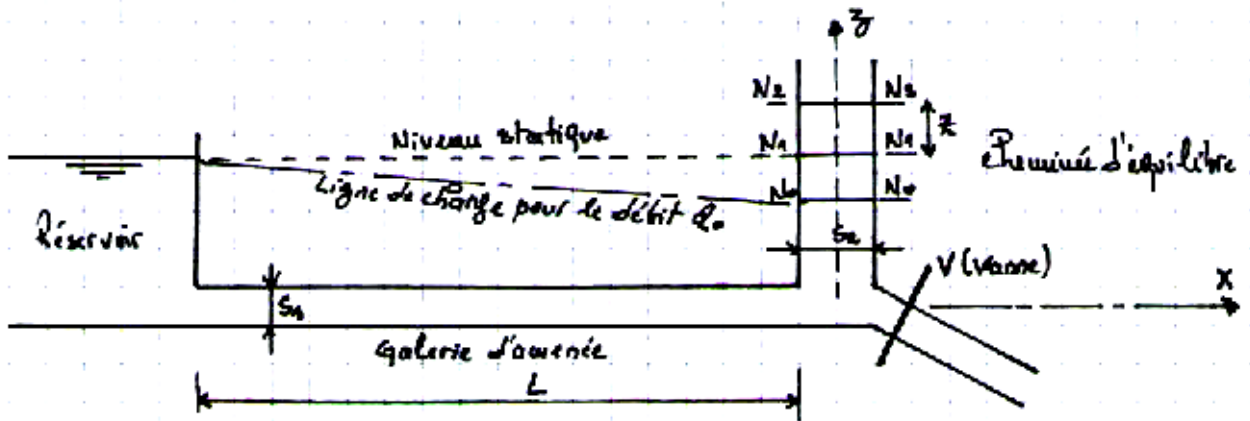 z
N2 N2
Niveau statique
z
N1 N1
Cheminée d'équilibre
Ligne de charge pour le débit Q₀
N₀ N₀
Réservoir
S2
V (Vanne)
X
S1
Galerie d'amenée
L